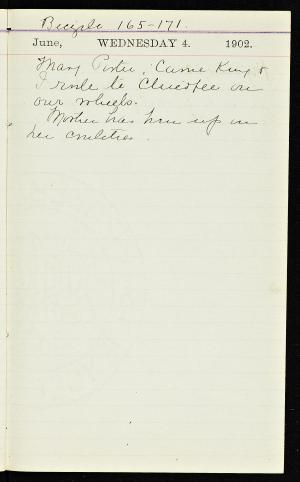 Bicycle 165-171.
June, WEDNESDAY 4. 1902.
Mary Porter, Carrie King &
I rode to on
our wheels.
Mother has been up in
her